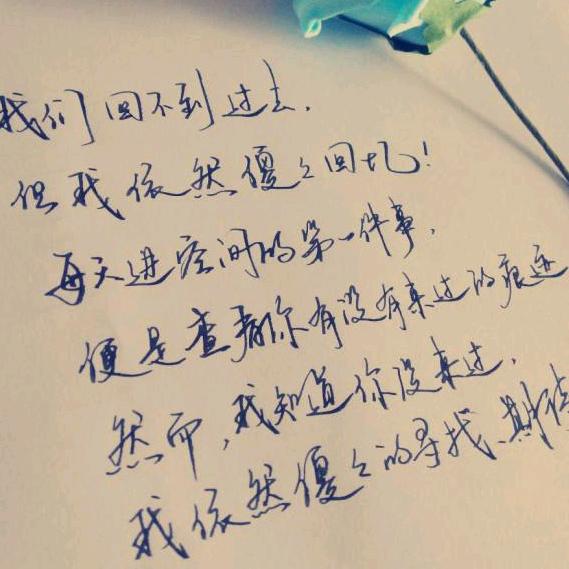 我们回不到过去.
但我依然傻々回忆!
每天进空间的第一件事,
便是查看你有没有来过的痕迹
然而,我知道你没来过,
我依然傻々的寻找、期待